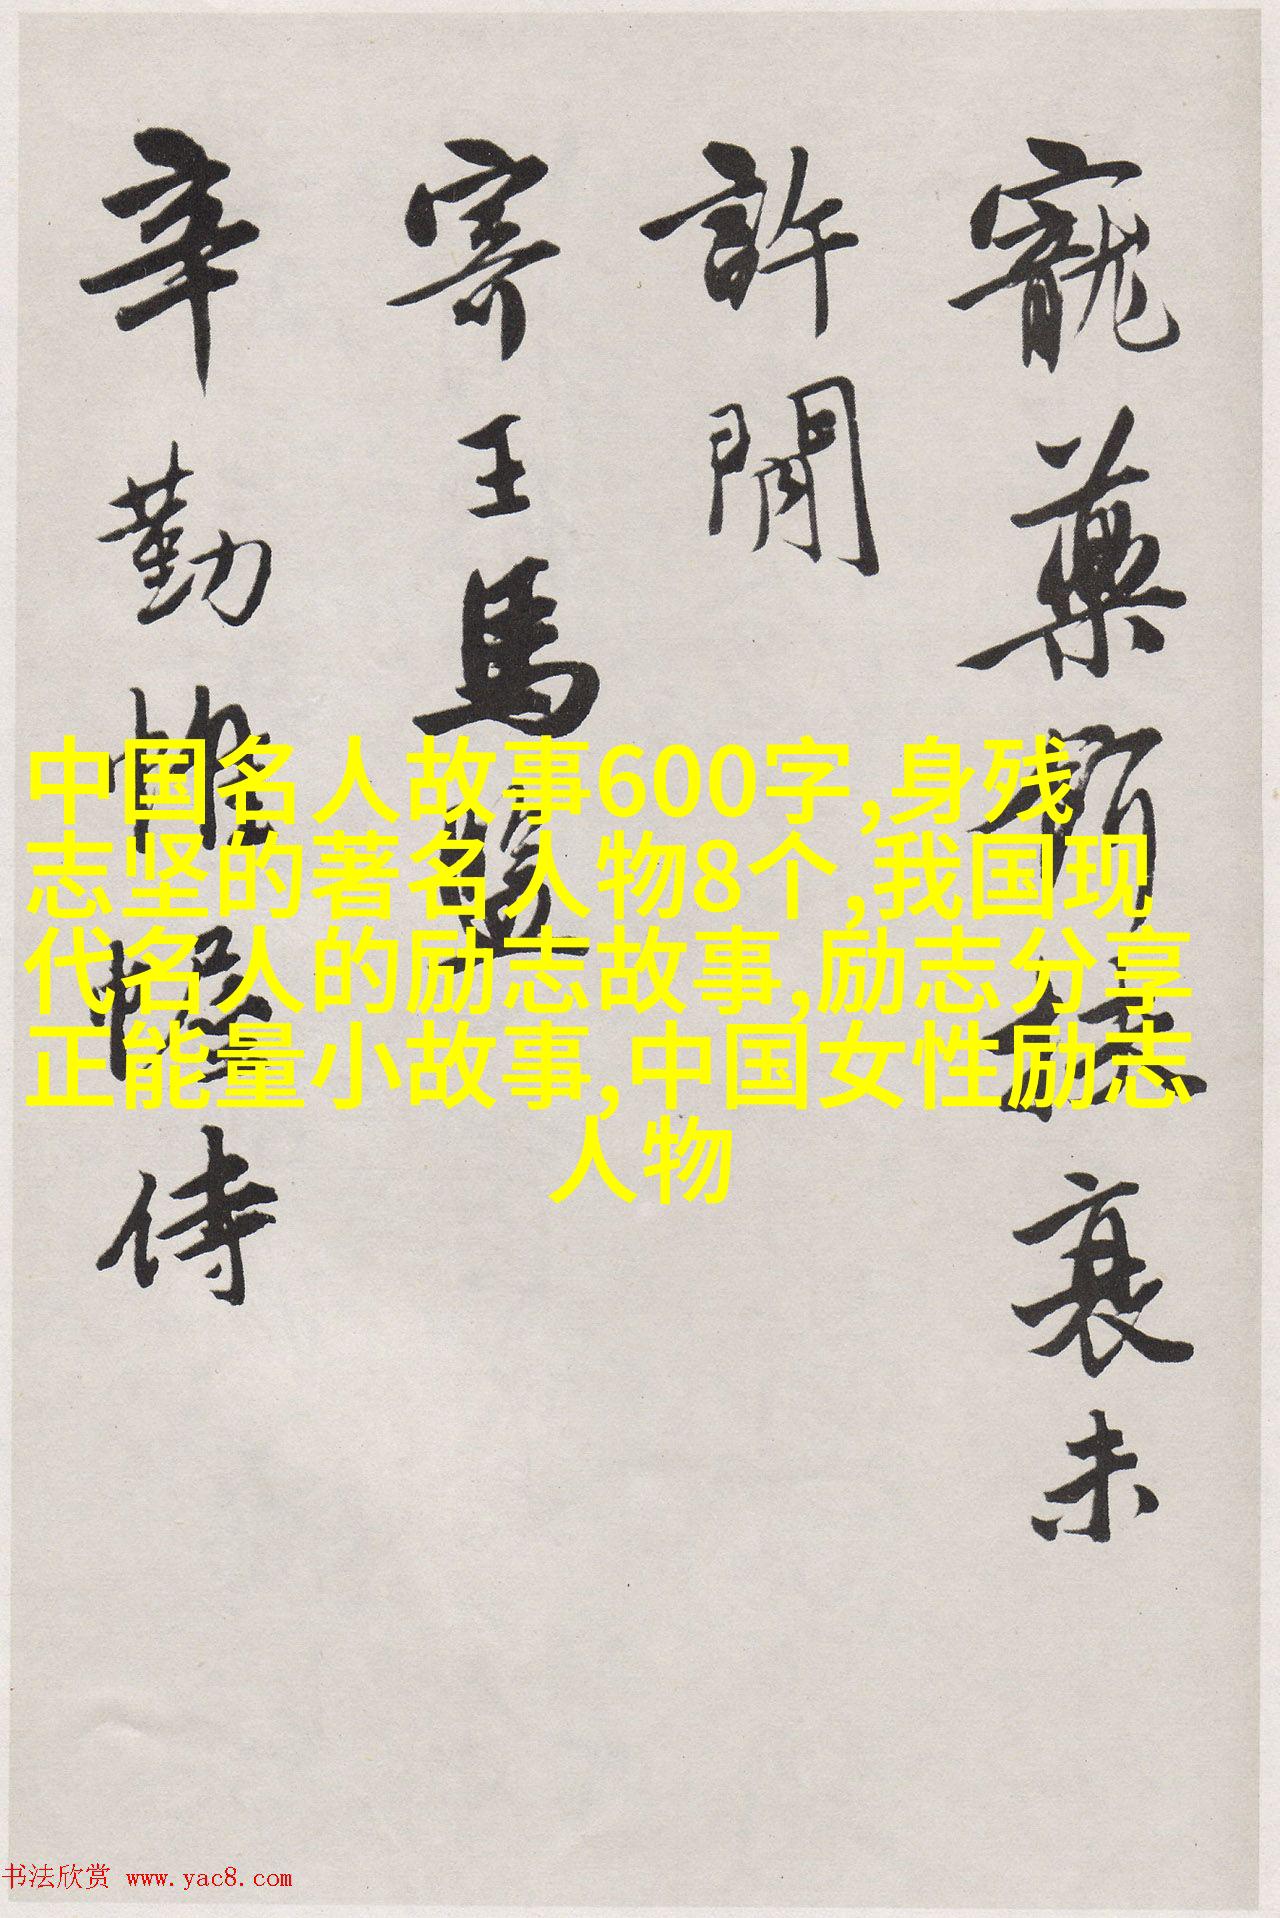 寵藥頒扶衰未
許閒
寄王馬監
辛勤帷幄侍
中国名人故事600字,身残
志坚的著名人物8个,我国现
代名人的励志故事,励志分享
正能量小故事,中国女性励志
人物
书法欣赏 www.yac8.com